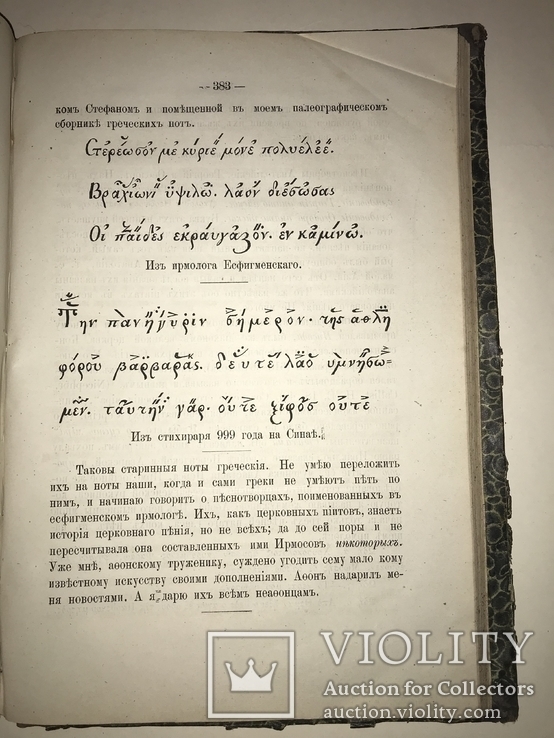 — 383 —
комъ Стефаномъ и помѣщенной въ моемъ палеографическомъ
сборникѣ греческихъ нотъ.
Στερέωσόν με κύριε μόνε πολυέλεε.
Βραχίωνι ὑψιλῶ. λαὸν διέσωσας
Οἱ παῖδες εκραυγαζον. ἐν καμίνω.
Изъ ирмолога Есфигменскаго.
Την πανήγυριν σήμερον. της αθλη
φόρου βαρβαρας. δεῦτε λαοὶ υμνήσω=
μεν. ταυτην γάρ. οὔτε ξίφος οὔτε
Изъ стихираря 999 года на Синаѣ.
Таковы старинныя ноты греческія. Не умѣю переложить
ихъ на ноты наши, когда и сами греки не умѣютъ пѣть по
нимъ, и начинаю говорить о пѣснотворцахъ, поименованныхъ въ
есфигменскомъ ирмологѣ. Ихъ, какъ церковныхъ піитовъ, знаетъ
исторія церковнаго пѣнія, но не всѣхъ; да до сей поры и не
пересчитывала она составленныхъ ими Ирмосовъ нѣкоторыхъ.
Уже мнѣ, аѳонскому труженику, суждено угодить сему мало кому
извѣстному искусству своими дополненіями. Аѳонъ надарилъ ме-
ня новостями. А я дарю ихъ всѣмъ неаѳонцамъ.
VIOLITY
Auction for Collectors
auction.violity.com